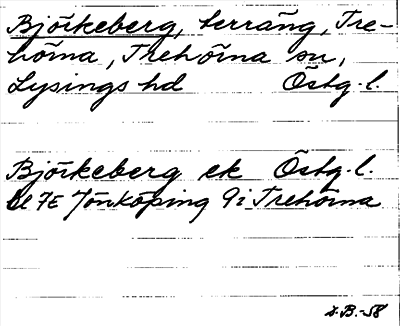 Björkeberg, terräng, Tre-
hörna, Trehörna sn,
Lysings hd Östg. l.
Björkeberg ek Östg. l.
Bl 7E Jönköping 9i Trehörna
B.-58